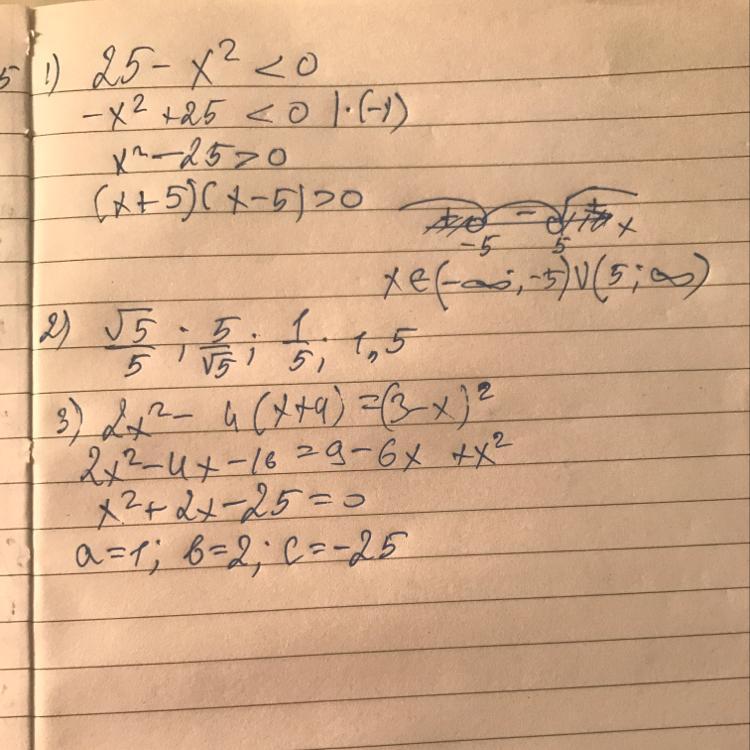 5 1) 25 - x² < 0
-x² + 25 < 0 | · (-1)
x² - 25 > 0
(x + 5)(x - 5) > 0 + - + x
-5 5
x ∈ (-∞; -5) ∪ (5; ∞)
2) √5/5 ; 5/√5 ; 1/5 ; 1,5
3) 2x² - 4(x+4) = (3-x)²
2x² - 4x - 16 = 9 - 6x + x²
x² + 2x - 25 = 0
a = 1; b = 2; c = -25